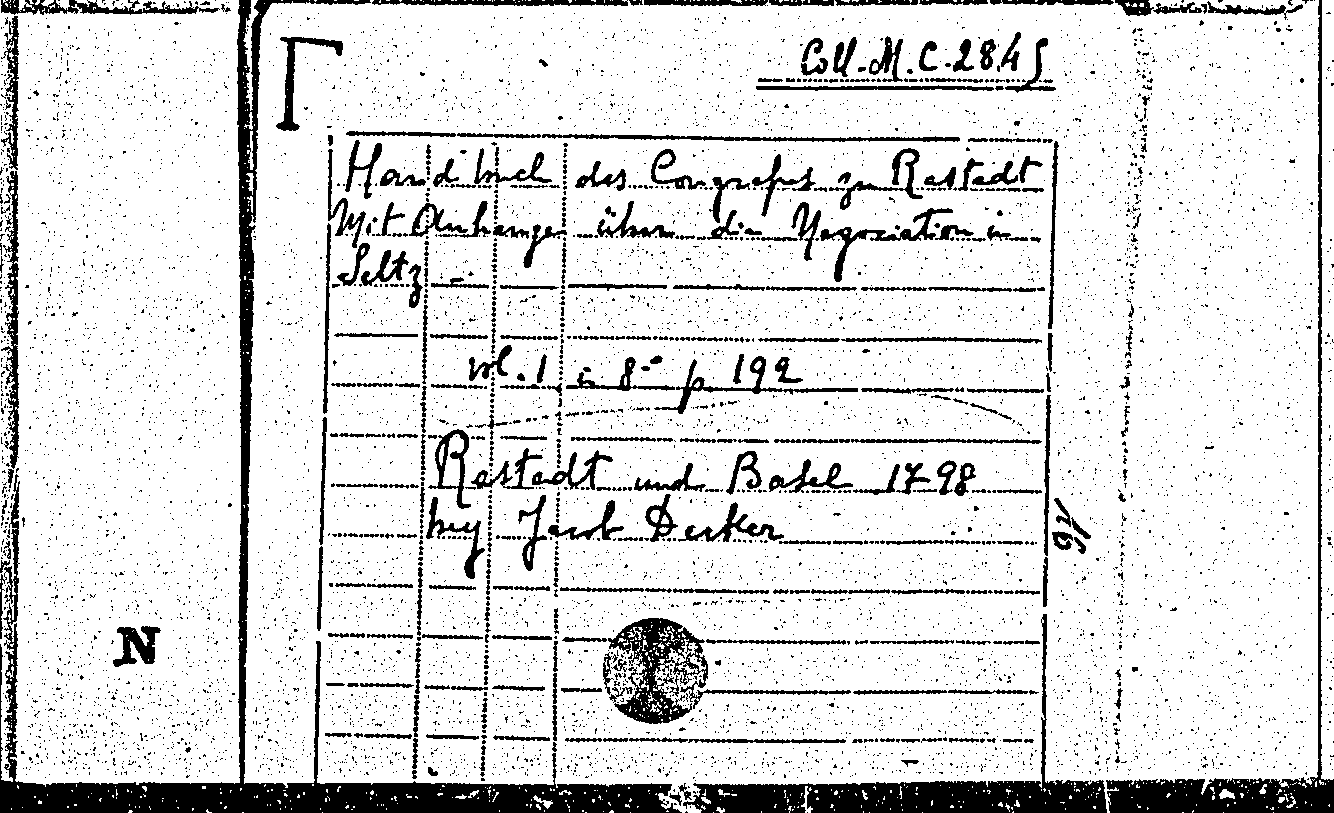 Coll. M. C. 284 S
Handbuch des Congreſses zu Rastadt
Mit Anhange über die Negoziation in
Seltz -
vol. 1 in 8° p 192
Rastadt und Basel 1798
bey Jacob Decker
N